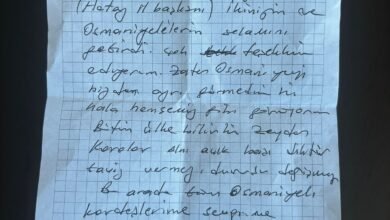 (Hatay İl başkanı) İkinizin ve
Osmaniyelilerin selamını
getirdi. çok teşekkür
ediyorum. Zaten Osmaniyeyi
hiç ayrı görmedim
hala hemşeriniz gibi görüyorum
Bütün ülke bilir ki Zeydan
Karalar alnı açık başı diktir
taviz vermez, duruşu değişmez
Bu arada tüm Osmaniyeli
kardeşlerime sevgimi